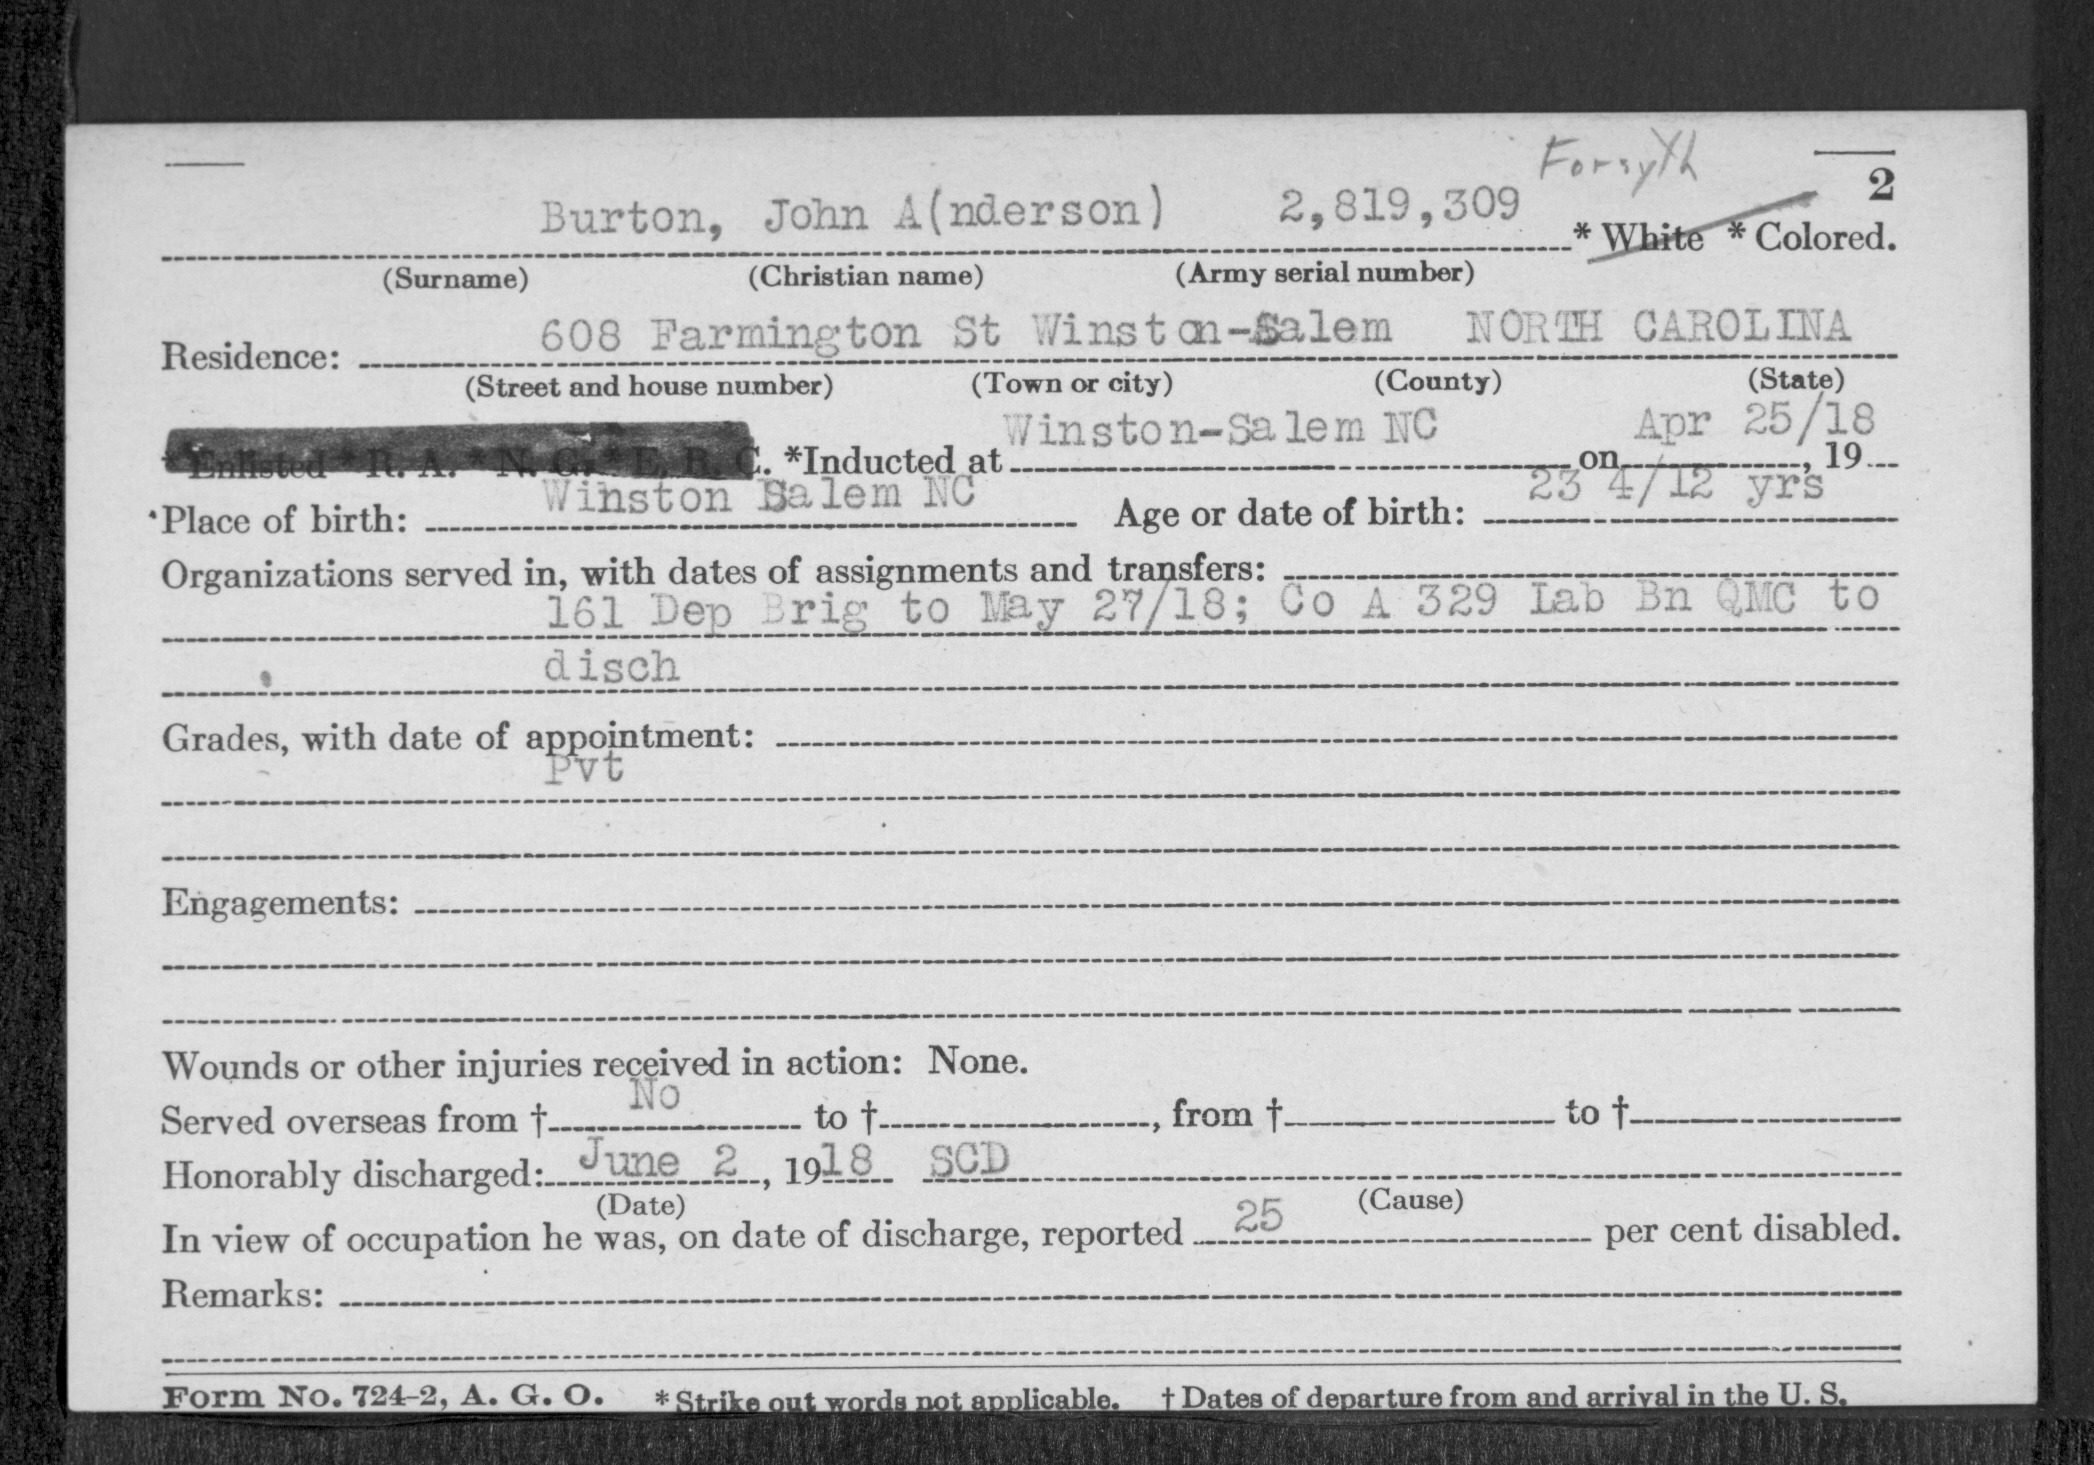 Forsyth
2
Burton, John A(nderson) 2,819,309 * White * Colored.
(Surname) (Christian name) (Army serial number)
608 Farmington St Winston-Salem NORTH CAROLINA
Residence:
(Street and house number) (Town or city) (County) (State)
Winston-Salem NC Apr 25/18
* Enlisted * R. A. * N. G. * E. R. C. *Inducted at on , 19
Winston Salem NC 23 4/12 yrs
Place of birth: Age or date of birth:
Organizations served in, with dates of assignments and transfers:
161 Dep Brig to May 27/18; Co A 329 Lab Bn QMC to
disch
Grades, with date of appointment:
Pvt
Engagements:
Wounds or other injuries received in action: None.
Served overseas from † No to † , from † to †
Honorably discharged: June 2 , 1918 SCD
(Date) (Cause)
In view of occupation he was, on date of discharge, reported 25 per cent disabled.
Remarks:
Form No. 724-2, A. G. O. * Strike out words not applicable. † Dates of departure from and arrival in the U. S.